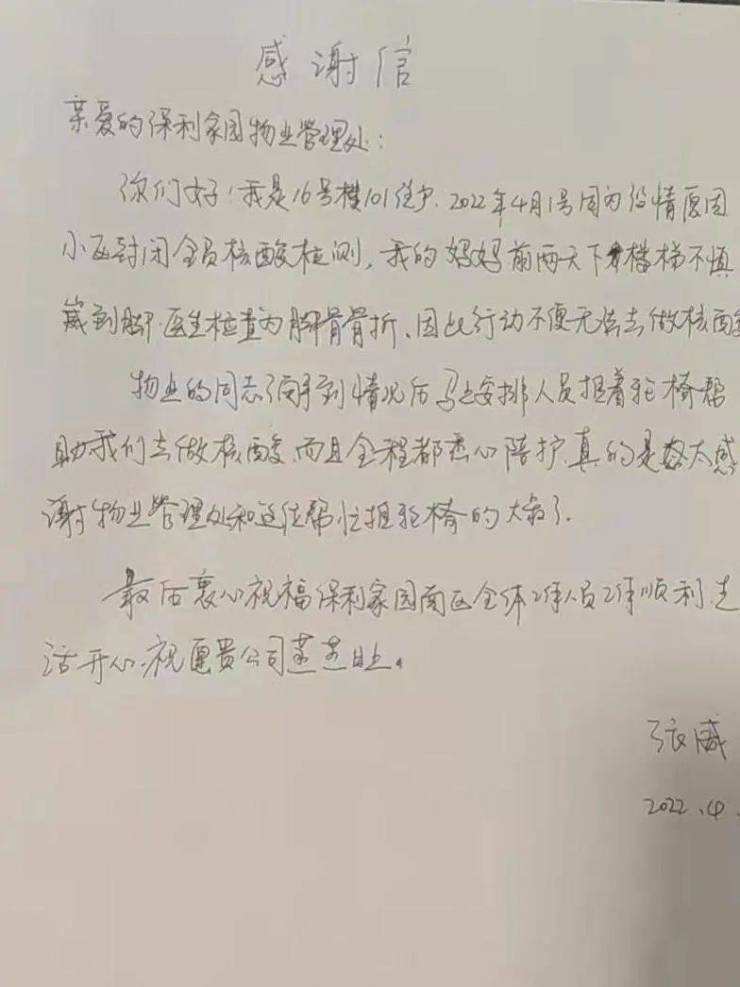 感谢信
亲爱的保利家园物业管理处：
你们好！我是16号楼101住户.2022年4月1号因为役情原因
小区封闭全员核酸检测，我的妈妈前两天下楼梯不慎
崴到脚.医生检查为脚骨骨折、因此行动不便无法去做核酸
物业的同志了解到情况后马上安排人员担着轮椅帮
助我们去做核酸而且全程都悉心陪护.真的是太感
谢物业管理处和这位帮忙担轮椅的大叔了.
最后衷心祝福保利家园南区全体工作人员工作顺利生
活开心.祝愿贵公司蒸蒸日上。
张威
2022.4.